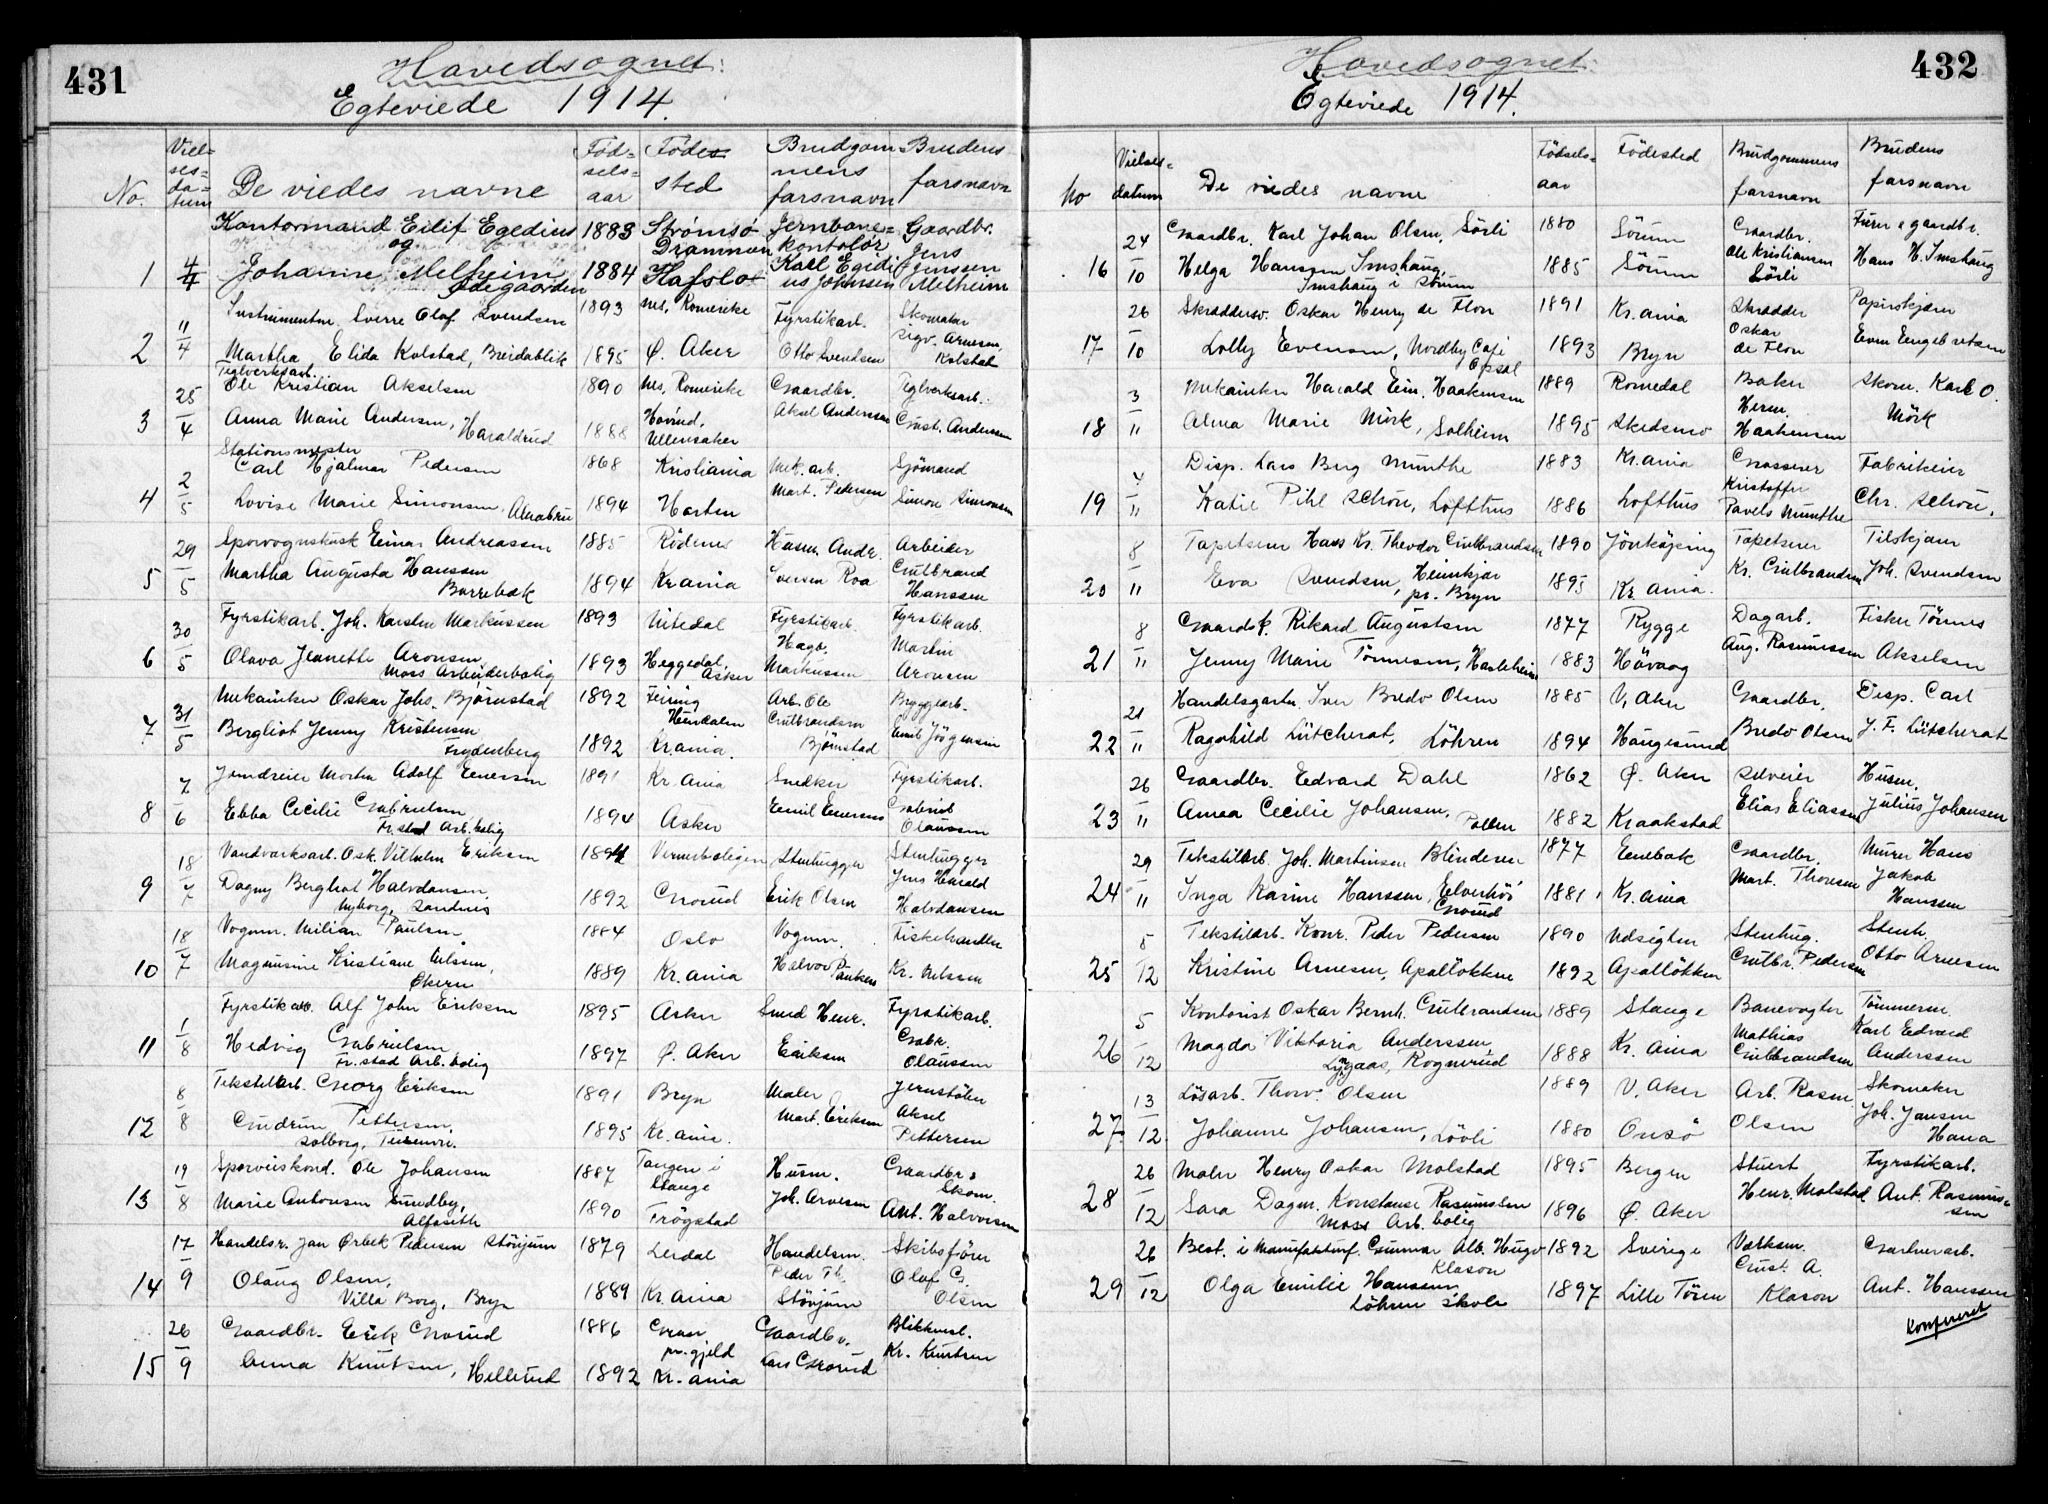 431
Hovedsognet:
Egteviede 1914.
No. Vielsesdatum De viedes navne Fødselsaar Fødested Brudgommens farsnavn Brudens farsnavn
Kontormand Eilif Egedius 1883 Strømsø Jernbane= Gaardbr.
og Drammen kontolør Jens
1 4/4 Johanne Melheim 1884 Hafslo Karl Egidi Jenssen
Ødegaarden us Johnsen Melheim
Instrumentm. Sverre Olaf Svendsen 1893 Nes, Romerike Fyrstikarb. Skomaker
2 11/4 Martha Elida Kolstad, Breidablik 1895 Ø. Aker Otto Svendsen Sigv. Arnesen Kolstad
Teglverksarb.
Ole Kristian Akselsen 1890 Nes, Romerike Gaardbr. Teglverksarb.
3 25/4 Anna Marie Andersen, Haraldrud 1888 Hovind, Ullensaker Aksel Anderssen Gust. Andersen
Stationsmester
Carl Hjalmar Pedersen 1868 Kristiania Mek. arb. Sjömand
4 2/5 Lovise Marie Simonsen, Alnabru 1894 Horten Mart. Pedersen Simon Simonsen
Sporvognskusk Einar Andreassen 1885 Rödenes Husm. Andr. Arbeider
5 29/5 Martha Augusta Hanssen 1894 Kr.ania Iversen Roa Gulbrand
Borrebæk Hanssen
Fyrstikarb. Joh. Karsten Markussen 1893 Nitedal Fyrstikarb. Fyrstikarb.
6 30/5 Olava Jeanette Aronsen 1893 Heggedal, Asker Hago. Markussen Martin Aronsen
Moss Arbeiderbolig
Mekaniker Oskar Johs. Bjørnstad 1892 Feiring Arb. Ole Bryggearb.
7 31/5 Bergliot Jenny Kristensen 1892 Kr.ania. Gulbrandsen Bjørnstad Emil Jörgensen
Frydenberg
Jerndreier Morten Adolf Eenersen 1891 Kr.ania Snedker Fyrstikarb.
8 7/6 Ebba Cecilie Gabrielsen 1894 Asker Emil Enersens Gabriel Olaussen
Fr.stad Arb.bolig
Vandværksarb. Osk. Vilhelm Eriksen 1894 Vernerboligen Stenhugger Stenhugger
9 18/7 Dagny Bergliot Halvdansen 1892 Grorud Erik Olsen Jens Harald Halvdansen
Nyborg, Sandnes
Vognm. Milian Paulsen 1884 Oslo Vognm. Fiskehandler
10 18/7 Magnusine Kristiane Nilssen, 1889 Kr.ania Halvor Paulsen Kr. Nilssen
Økern
Fyrstikarb. Alf John Eriksen 1895 Asker Smed Henr. Fyrstikarb.
11 1/8 Hedvig Gabrielsen 1897 Ø. Aker Eriksen Gabr. Olaussen
Fr.stad Arb.bolig
Tekstilarb. Georg Eriksen 1891 Bryn Maler Jernstöber
12 8/8 Gudrun Pettersen, 1895 Kr.ania. Mart. Eriksen Aksel Pettersen
Solborg, Teisenvn.
Sporveiskond. Ole Johansen 1887 Tangen i Stange Husm. Gaardbr. Skom.
13 19/8 Marie Antonsen Sundby, 1890 Trögstad Joh. Arvesen Ant. Halvorsen
Alfasette
Handelsr. Jan Ørbek Pedersen Störjum 1879 Lerdal Handelsm. Skibsförer
14 17/9 Olaug Olsen, 1889 Kr.ania Peder Th. Störjum Olaf G. Olsen
Villa Borg, Bryn
Gaardbr. Erik Grorud 1886 Gran pr.gjeld Gaardbr. Blikkensl.
15 26/9 Anna Knutsen, Hellerud 1892 Kr.ania Lars Grorud Kr. Knutsen
432
Hovedsognet:
Egteviede 1914.
No Vielsesdatum De viedes navne Fødselsaar Fødested Brudgommens farsnavn Brudens farsnavn
Gaardbr. Karl Johan Olsen, Sörli 1880 Sörum Gaardbr. Furer & gaardbr.
16 24/10 Helga Hanssen Imshaug, 1885 Sörum Ole Kristiansen Sörli Hans H. Imshaug
Imshaug i Sörum
Skræddersv. Oskar Henry de Flon 1891 Kr.ania Skrædder Papirskjærer
17 26/10 Lolly Evensen, Nordby Café Opsal 1893 Bryn Oskar de Flon Even Engebretsen
Mekaniker Harald Ein. Haakensen 1889 Romedal Baker Skom. Karl O.
18 3/11 Alma Marie Mörk, Solheim 1895 Skedsmo Herm. Haakensen Mörk
Disp. Lars Berg Munthe 1883 Kr.ania Grosserer Fabrikeier
19 7/11 Katie Pihl Schou, Lofthus 1886 Lofthus Kristoffer Pavels Munthe Chr. Schou.
Tapetserer Hans Kr. Theodor Gulbrandsen 1890 Jönköping Tapetserer Tilskjærer
20 8/11 Eva Svendsen, Heimkjær pr. Bryn 1895 Kr.ania. Kr. Gulbrandsen Joh. Svendsen
Gaardsk. Rikard Augustsen 1877 Rygge Dagarb. Fisker Tönnes
21 8/11 Jenny Marie Tönnesen, Hasleheim 1883 Hövaag Aug. Rasmussen Akselsen
Handelsgartn. Iver Bredo Olsen 1885 V. Aker Gaardbr. Disp. Carl
22 21/11 Ragnhild Lütcherat, Löhren 1894 Haugesund Bredo Olsen J. F. Lütcherat
Gaardbr. Edvard Dahl 1862 Ø. Aker Selveier Husm.
23 26/11 Anna Cecilie Johansen, Pollen 1882 Kraakstad Elias Eliassen Julius Johansen
Tekstilarb. Joh. Martinsen Blinderen 1877 Enebak Gaardbr. Murer Hans
24 29/11 Inga Karine Hanssen, Elverhöi 1881 Kr.ania Mart. Thoresen Jakob Hanssen
Grorud
Tekstilarb. Konr. Peder Pedersen 1890 Udsigten Stenhug. Stenh.
25 5/12 Kristine Arnesen, Apallökken 1892 Apallökken Gulbr. Pedersen Otto Arnesen
Kontorist Oskar Bernh. Gulbrandsen 1889 Stange Banevogter Tömmerm.
26 5/12 Magda Viktoria Anderssen, 1888 Kr.ania Mathias Gulbrandsen Karl Edvard Anderssen
Lyngaas, Rognerud
Lösarb. Thorv. Olsen 1889 V. Aker Arb. Rasm. Skomaker
27 13/12 Johanne Johansen, Lövli 1880 Onsö Olsen Joh. Jansen Hana
Maler Henry Oskar Molstad 1895 Bergen Stuert Fyrstikarb.
28 26/12 Sara Dagm. Konstanse Rasmussen 1896 Ø. Aker Henr. Molstad Ant. Rasmussen
Moss Arb.bolig
Best. i Manufakturf. Gunnar Alb. Hugo 1892 Sverige Værksm. Gartnerarb.
Klason Gust. A.
29 26/12 Olga Emilie Hanssen, 1897 Lille Töien Klason Ant. Hanssen
Löhren skole
Konfereret